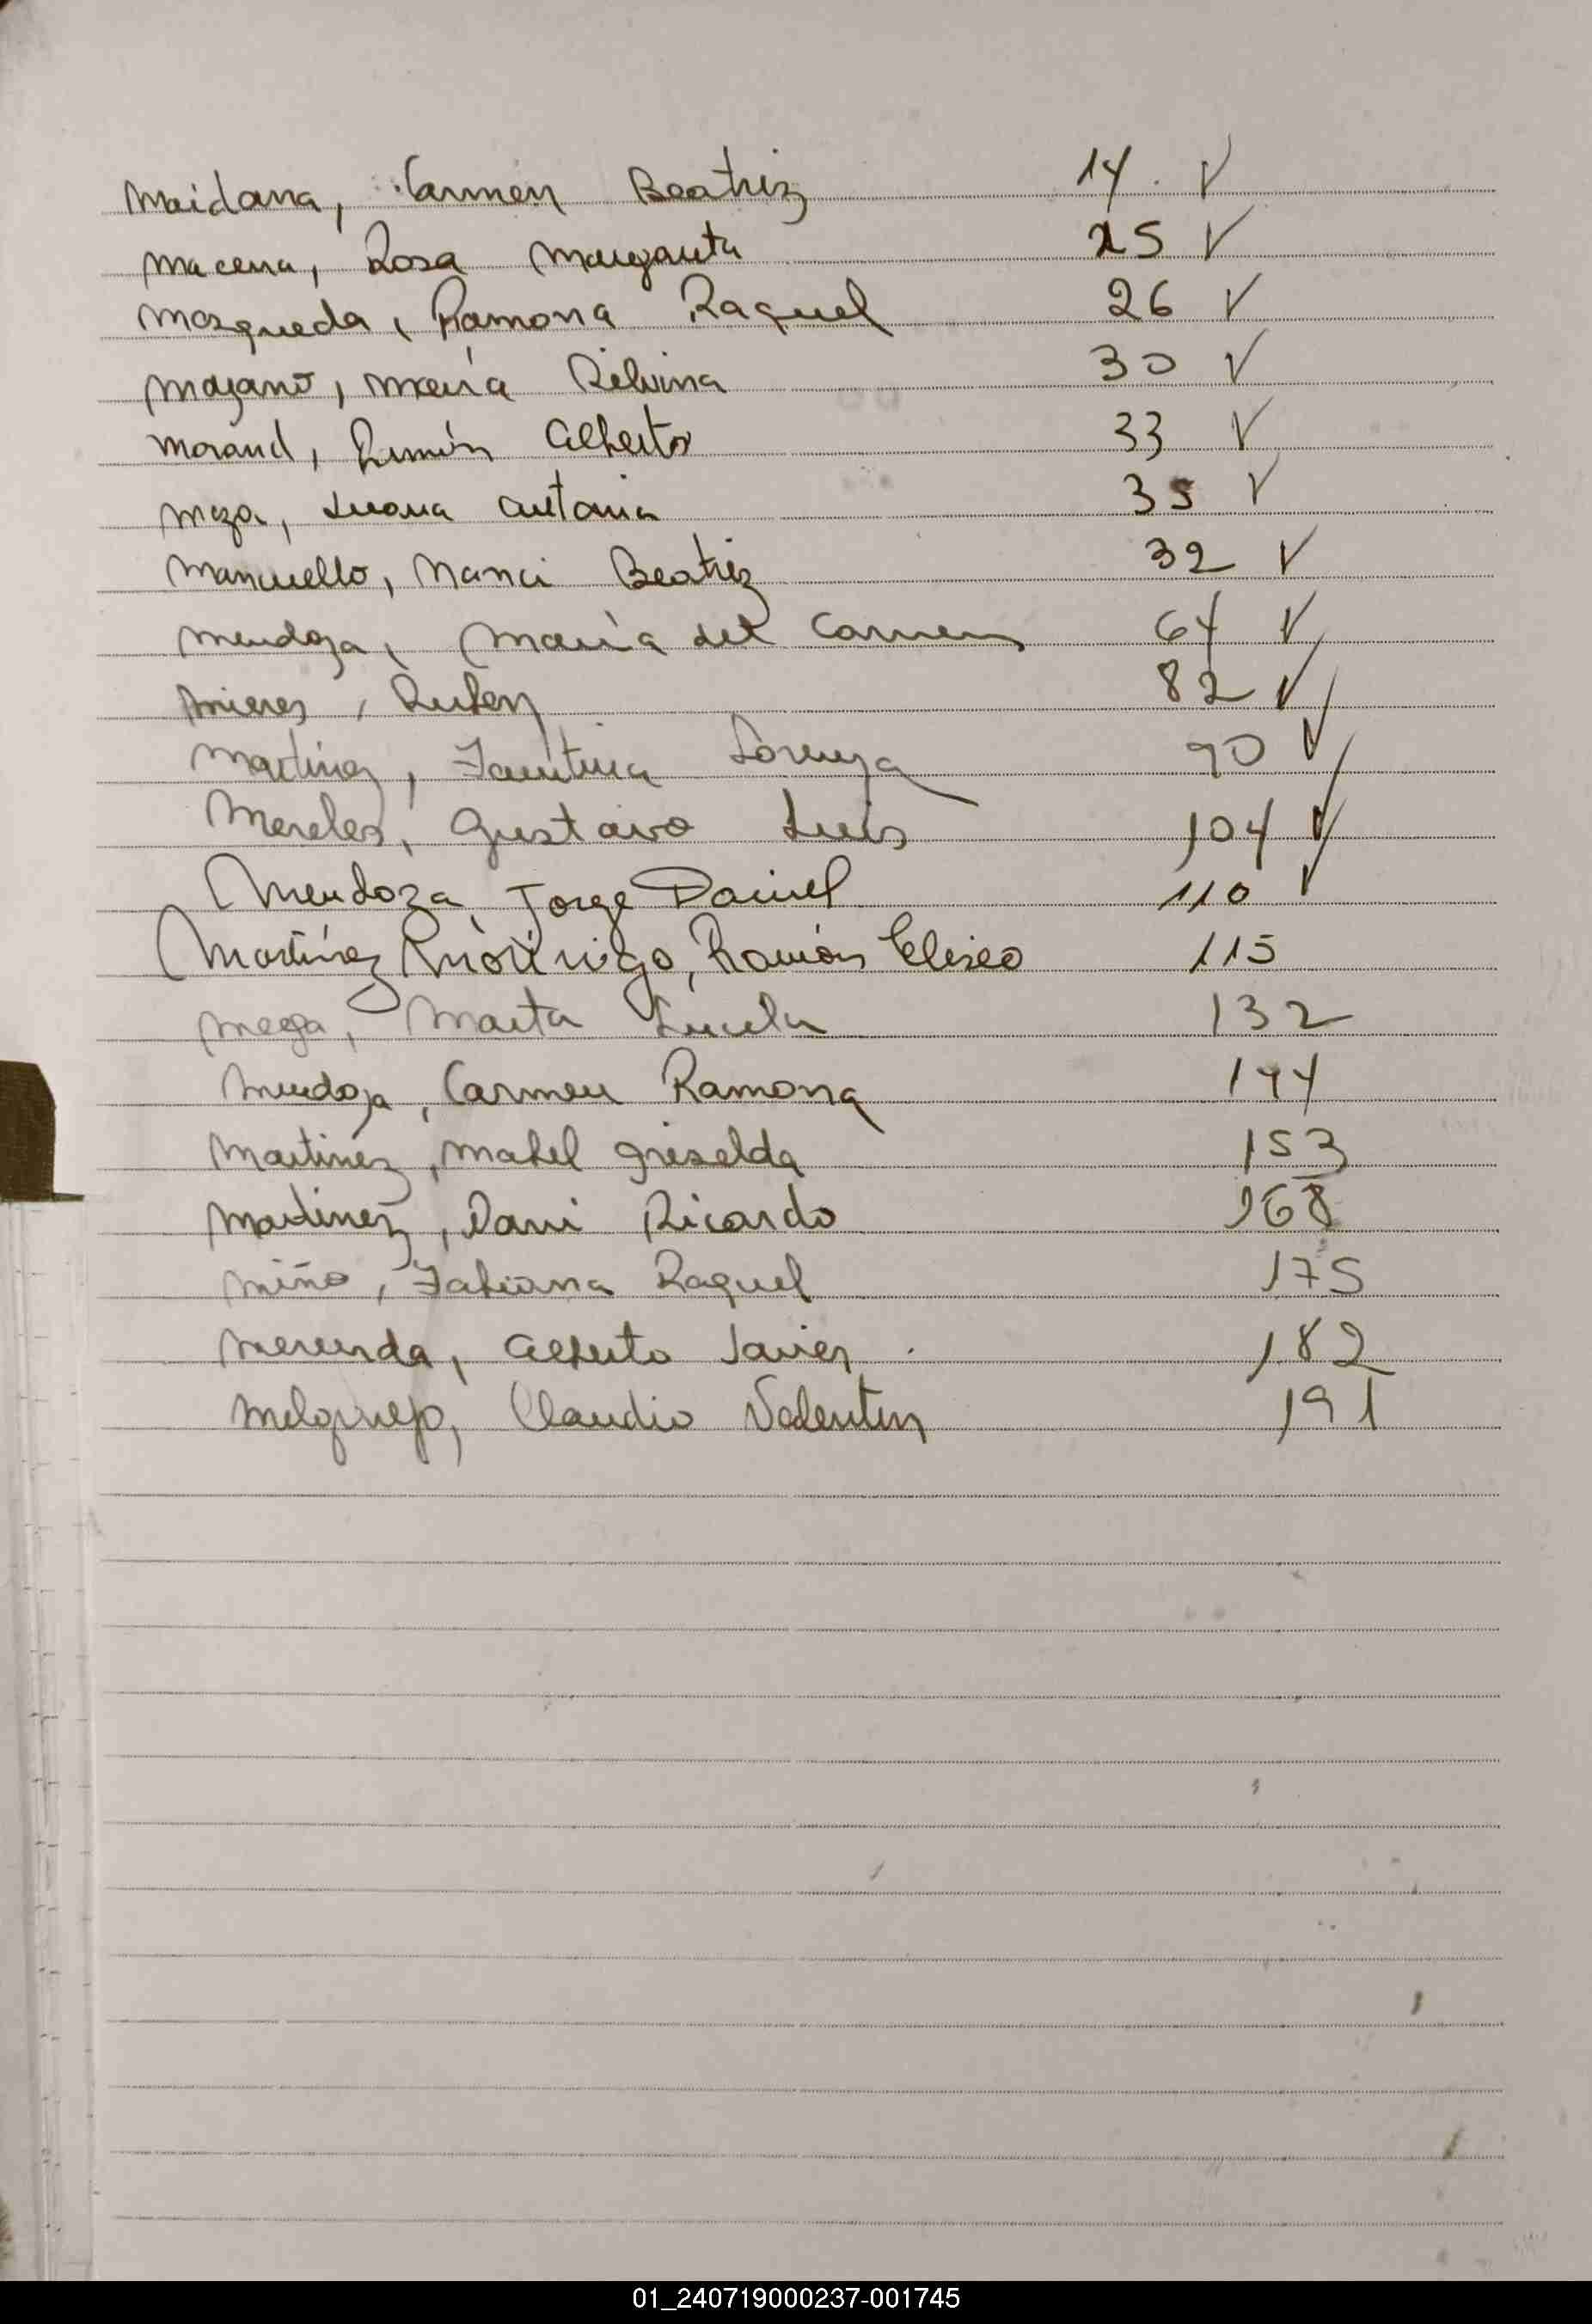 Maidana, Carmen Beatriz 14. ✓
Macena, Rosa Margarita 25 ✓
Mosqueda, Ramona Raquel 26 ✓
Mozano, María Silvina 30 ✓
Morand, Ramón Alberto 33 ✓
Meza, Juana Antonia 35 ✓
Mancuello, Nanci Beatriz 32 ✓
Mendoza, María del Carmen 64 ✓
Mieres, Ruben 82 ✓
Martínez, Faustina Lorenza 90 ✓
Mereles, Gustavo Luis 104 ✓
Mendoza, Jorge Daniel 110 ✓
Martínez Ramón Eliseo 115
Meza, Marta Lucila 132
Mendoza, Carmen Ramona 144
Martinez, Mabel Griselda 153
Martinez, Dani Ricardo 168
Miño, Fabiana Raquel 175
Merenda, Alberto Javier 182
Melgarejo, Claudio Valentin 191
01_240719000237-001745